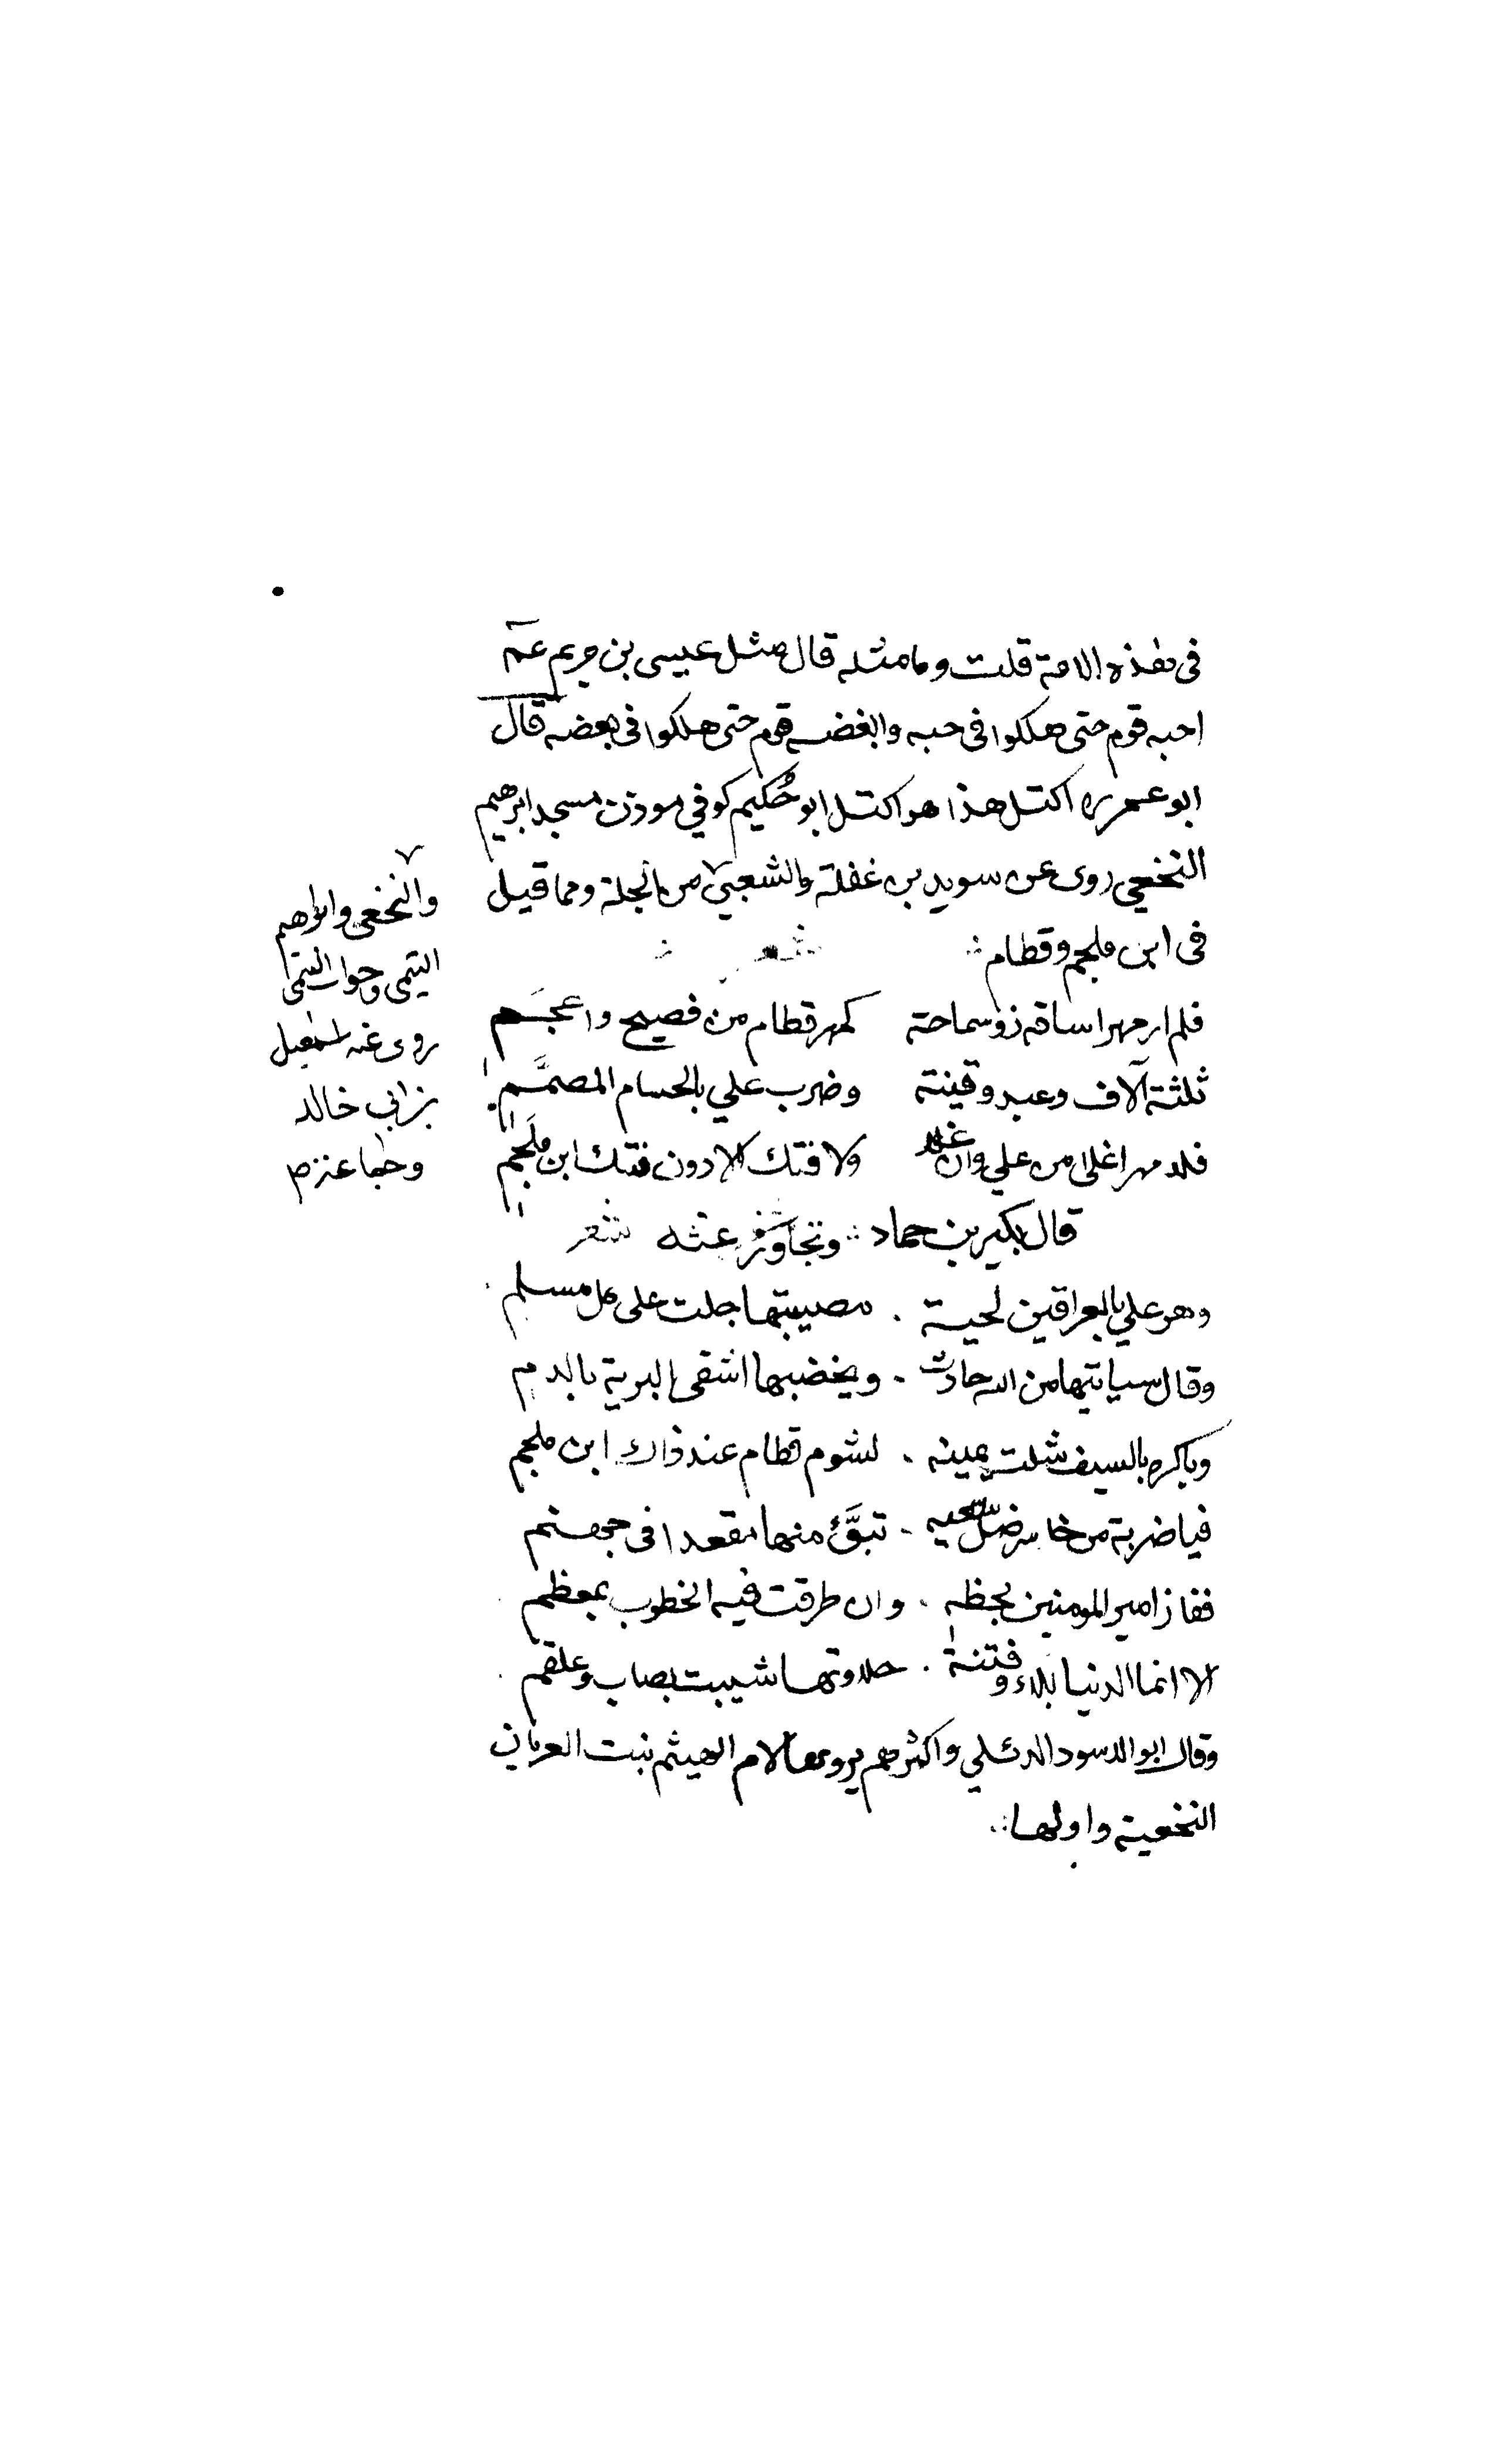 في هذه الامة قلت وما مثله قال مثل عيسى بن مريم عم
احبه قوم حتى هلكوا فى حبه وابغضه قوم حتى هلكوا فى بعضه قال
ابو عمر ره اكتل هذا هو اكتل ابو حُكيم كوفي موذن مسجد ابرهيم
النخعي روى عن سويد بن غفلة والشعبي من الجلة ومما قيل
فى ابن ملجم وقطام شعر
فلم ار مهرا ساقه ذو سماحة كمهر قطام من فصيح واعجم
ثلثة آلاف وعبد وقينة وضرب علي بالحسام المصمَّم
فلا مهر اغلا من علي وان غلا ولا فتك الا دون فتك ابن ملجم
قال بكير بن حماد وتجاوز عنه شعر
وهز علي بالعراقين لحية مصيبتها جلت على كل مسلم
وقال سياتيها من الله حادث ويخضبها اشقى البرية بالدم
وباكره بالسيف شلت يمينه لشوم قطام عند ذاك ابن ملجم
فيا ضربة من خاسر ضل سعيه تبوَّئ منها مقعدا فى جهنم
ففاز امير المومنين بحظه وان طرقت فيه الخطوب بمعظم
الا انما الدنيا بلاء وفتنة حلاوتها شيبت بصاب وعلقم
وقال ابو الاسود الدئلي واكثرهم يرويها لام الهيثم بنت العريان
النخعية واولها
والنخعي وابراهيم
التيمي وجواب التيمي
روى عنه اسمعيل
بن ابي خالد
وجماعة